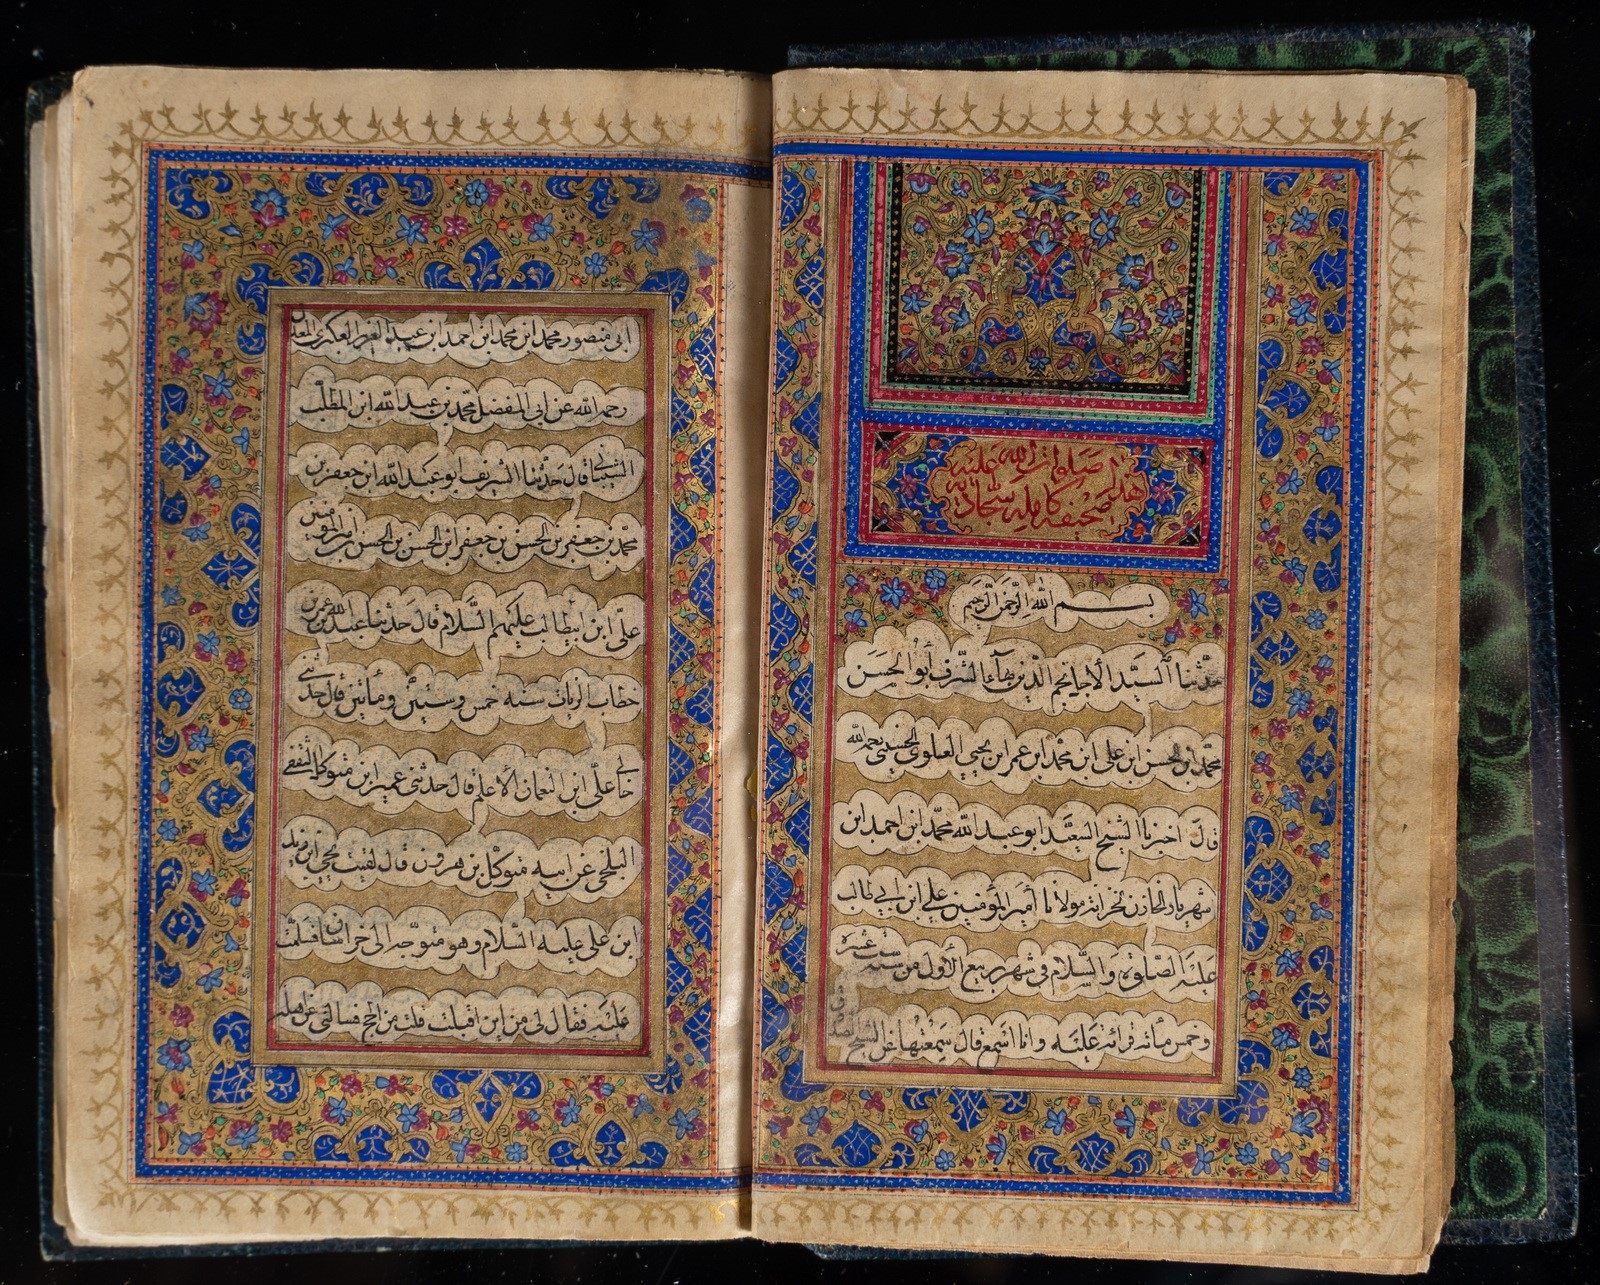 هذا الصحیفه کامله سجادیه
صلوات الله علیه
بسم الله الرحمن الرحیم
حدثنا السید الاجل نجم الدین بهاء الشرف أبو الحسن
محمد ابن الحسن ابن علی ابن محمد ابن عمر ابن یحیی العلوی الحسینی رحمه الله
قال اخبرنا الشیخ السعید ابو عبد الله محمد ابن احمد ابن
شهریار الخازن لخزانة مولانا أمیر المؤمنین علی ابن ابی طالب
علیه الصلوة والسلام فی شهر ربیع الأول من سنه ست عشره
و خمس مأئه قرائة علیه وانا اسمع قال سمعتها عن الشیخ الصدوق
ابی منصور محمد ابن محمد ابن احمد ابن عبد العزیز العکبری المعدل
رحمه الله عن ابی المفضل محمد بن عبد الله ابن المطلب
الشیبانی قال حدثنا الشریف ابو عبد الله ابن جعفر بن
محمد بن جعفر بن الحسن بن جعفر ابن الحسن بن الحسن ابن امیر المؤمنین
علی ابن ابیطالب علیهم السلام قال حدثنا عبد الله بن عمر بن
خطاب الزیات سنه خمس وستین ومأتین قال حدثنی
خالی علی ابن النعمان الأعلم قال حدثنی عمیر ابن متوکل الثقفی
البلخی عن ابیه متوکل بن هرون قال لقیت یحیی ابن زید
ابن علی علیه السلام وهو متوجه الی خراسان فسلمت
علیه فقال لی من این اقبلت قلت من الحج فسالنی عن اهله